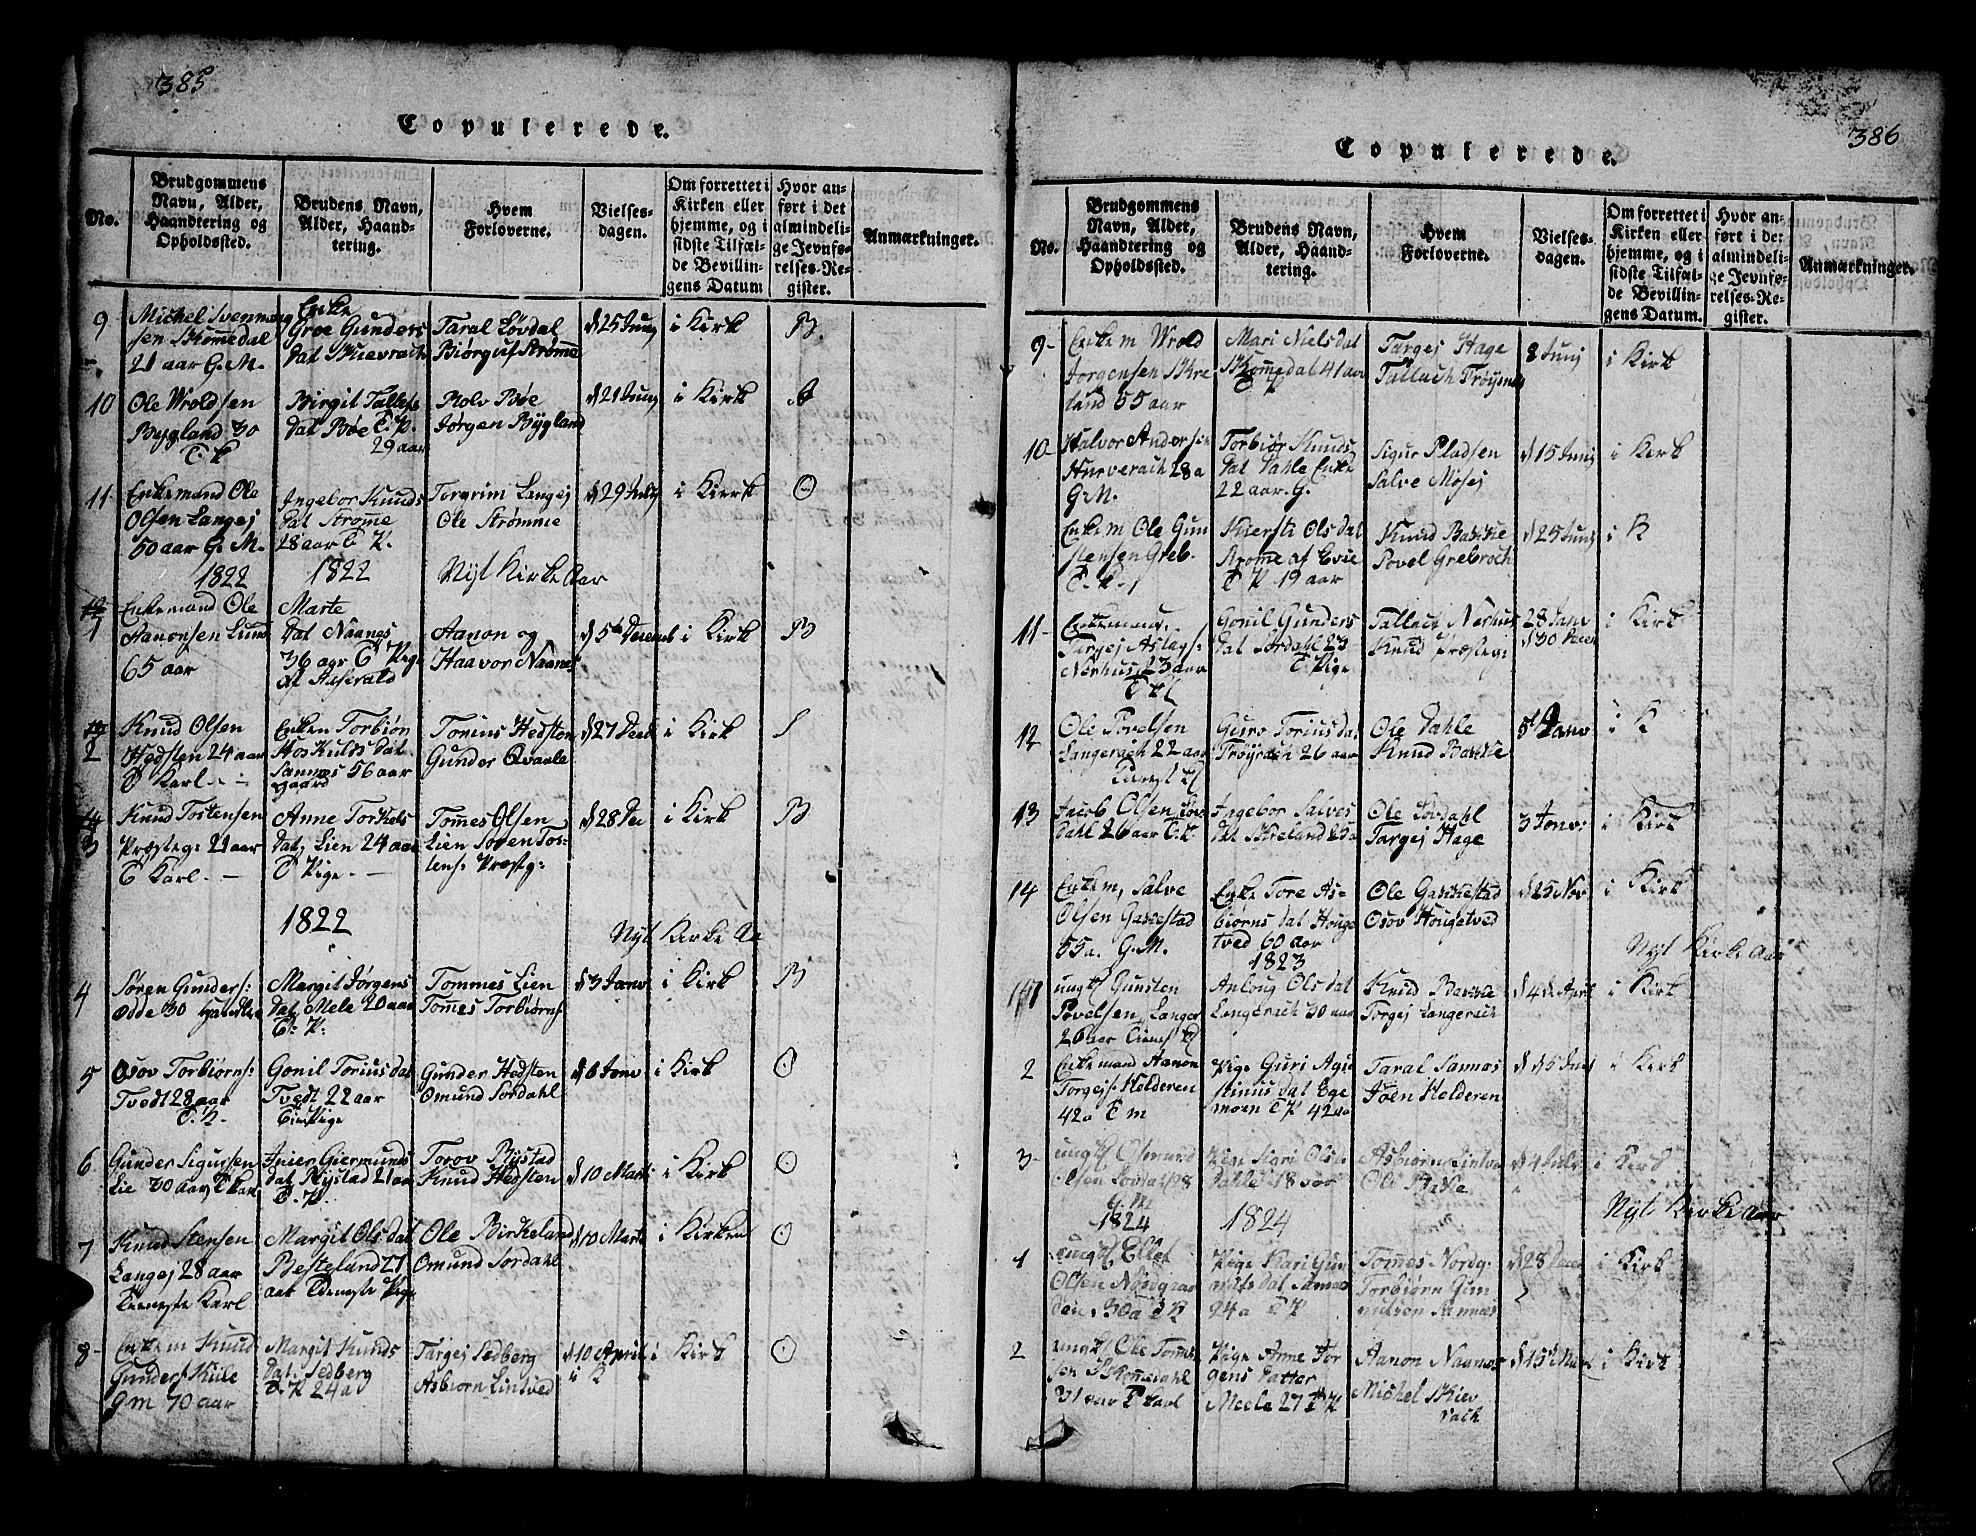 385
Copulerede.
No.
Brudgommens Navn, Alder, Haandtering og Opholdssted.
Brudens Navn, Alder, Haandtering.
Hvem Forloverne.
Vielsesdagen.
Om forrettet i Kirken eller hjemme, og i sidste Tilfælde Bevillingens Datum
Hvor anført i det almindelige Jevnførelses-Register.
Anmærkninger.
9
Michel Svenning
sen Skomedal
21 aar G. M.
Enke
Groe Gunders
dat Kievrach
Taral Løvdal
Biørguf Strøme
d 25 Junj
i Kirk
B.
10
Ole Wroldsen
Bygland 30
T. K
Birgit Tallefs
dat Bøe T. P.
29 aar
Rolv Bøe
Jørgen Bygland
d 21 Junj
i Kirk
11
Enkemand Ole
Olsen Langej
50 aar G. M.
Ingebor Knuds
dat Strøme
28 aar T P.
Torgrim Langej
Ole Strømme
d 29 July
i Kierk
1822
1822
Nyt Kirke Aar
1
Enkemand Ole
Aanonsen Lund
65 aar
Marte
dat Naanes
36 aar T Pige
af Aaserald
Aanon og
Haavor Naanes
d 5te Decemb
i Kirk
B
2
Knud Olsen
Hedsten 24 aar
T Karl
Enken Torbiøn
Hoskulds dat
Sannæs 56 aar
gaard
Torius Hedsten
Gunder Qvaale
d 27 Decb
i Kirk
3
Knud Tostensen
Præsteg: 21 aar
T Karl
Anne Torkels
Dat, Lien 24 aar
T Pige
Tomes Olsen
Lien Toren Tos-
tens: Præstg:
d 28 De
i Kirk
B
1822
Nyt Kirke Aa
4
Søren Gunders:
Odde 30
Margit Jørgens
Dat, Mele 20 aar
T. P:
Tommes Lien
Tomes Torbiørns
d 3 Janv
i Kirk
B
5
Osov Torbiørns:
Tvedt 28 aar
T. K.
Gonil Torius dat
Tvedt 22 aar
Tien Pige
Gunder Hedsten
Omund Sordahl
d 6 Janv
i Kirk
6
Gunder Sigursen
Lie 30 aar, T Karl
Giermunds
dat Rystad 21 aar
T. P.
Torov Rystad
Knud Hedsten
d 10 Marti
i Kirk
7
Knud Stensen
Langej 28 aar
Tieneste Karl
Margit Ols dat
Besteland 27
aar Tieneste Pige
Ole Birkeland
Omund Sordahl
d 10 Marti
i Kirken
8
Enkem Knud
Gunders Kile
G m 70 aar
Margit Knuds
Dat. Sedberg
T. P 24 a
Targej Sedberg
Asbiorn Lintved
d 10 April
i K
i Kirk
386
Copulerede.
No.
Brudgommens Navn, Alder, Haandtering og Opholdssted.
Brudens Navn, Alder, Haandtering.
Hvem Forloverne.
Vielsesdagen.
Om forrettet i Kirken eller hjemme, og i sidste Tilfælde Bevillingens Datum.
Hvor anført i det almindelige Jevnførelses-Register.
Anmærkninger.
9
Enkem Wrold
Jorgensen Kre
land 55 aar
Mari Niels dat
Skomedal 41 aar
T P
Targej Hage
Tallach Trøysnes
8 Junj
i Kirk
10
Halvor Andersen
28 a
G. M.
Torbiør Knuds
Dat Dahle Enke
22 aar. G.
Sigur Pladsen
Salve Mosej
d 15 Junj
i Kirk
Enkem Ole Gun
stensen Greb.
T. K.
Kiersti Ols dat
Krome af Evie
T P 19 aar
Knud Bakke
Povel Grebroch
d 25 Junj
i K
11
Enkemand
Targej Aslags:
Nærhus, 23 aar
T K
Gonil Gunders
Dat Sordahl 23
T Pige
Tallach Nerhus
Knud Præstegi
28 Janv
d 30
i Kirk
12
Ole Povelsen
Langerach 22 aar
Tienest K
Guro Torius dat
Trøyrach 26 aar
Ole Dahle
Knud Bakke
5te Janv
i K
13
Jacob Olsen Løv
dall 26 aar T. K
Ingebor Salves
dat Kreland 25 a
Ole Løvdahl
Targej Hage
3 Janv:
i Kirk
14
Enkem, Salve
Olsen Gakkestad
55 a. G. M.
Enke Tore As-
biørns dat Houge
tved 60 aar
Ole Gakkestad
Osov Hougetved
d 25 Nov
i Kirk
1823
Nyt Kirke Aar
1
ungk Gunsten
Povelsen, Langer
26 aar Tienes K
Anlong Ols dat
Langerach 30 aar
Knud Bakke
Torgej Langerach
d 4de April
i Kirk
2
Enkemand Aanon
Torgejs: Helderen
42 a T m
Pige Guri Agu
stinus dat Ege
moen T P 42 aa
Taral Sannes
Joen Helderen
d 15 Junj
i Kirk
3
ungk Osmund
Olsen Lovdal 28
G. M
Pige Sigri Ols-
Dahle 18 aar
Asbiørn Lintve
Ole Bakke
d 4 Juli
i Kirk
1824
1824
Nyt Kirke Aar
1
ungk Ellef
Olsen Nordgaar
den, 30 a T K
Pige Kari Gun
nufs dat Sannes
24 a T P
Tomes Nordg.
Torbiørn Gun
nufsen Sannes
d 28 Decer
i Kirk
2
ungk Ole Tomes
sen Skomedahl
31 aar T Karl
Pige Anne Jor
gens Datter
Meele 27 T P
Aanon Naanes
Michel Kiev
rach
d 15 Marti
i Kirk